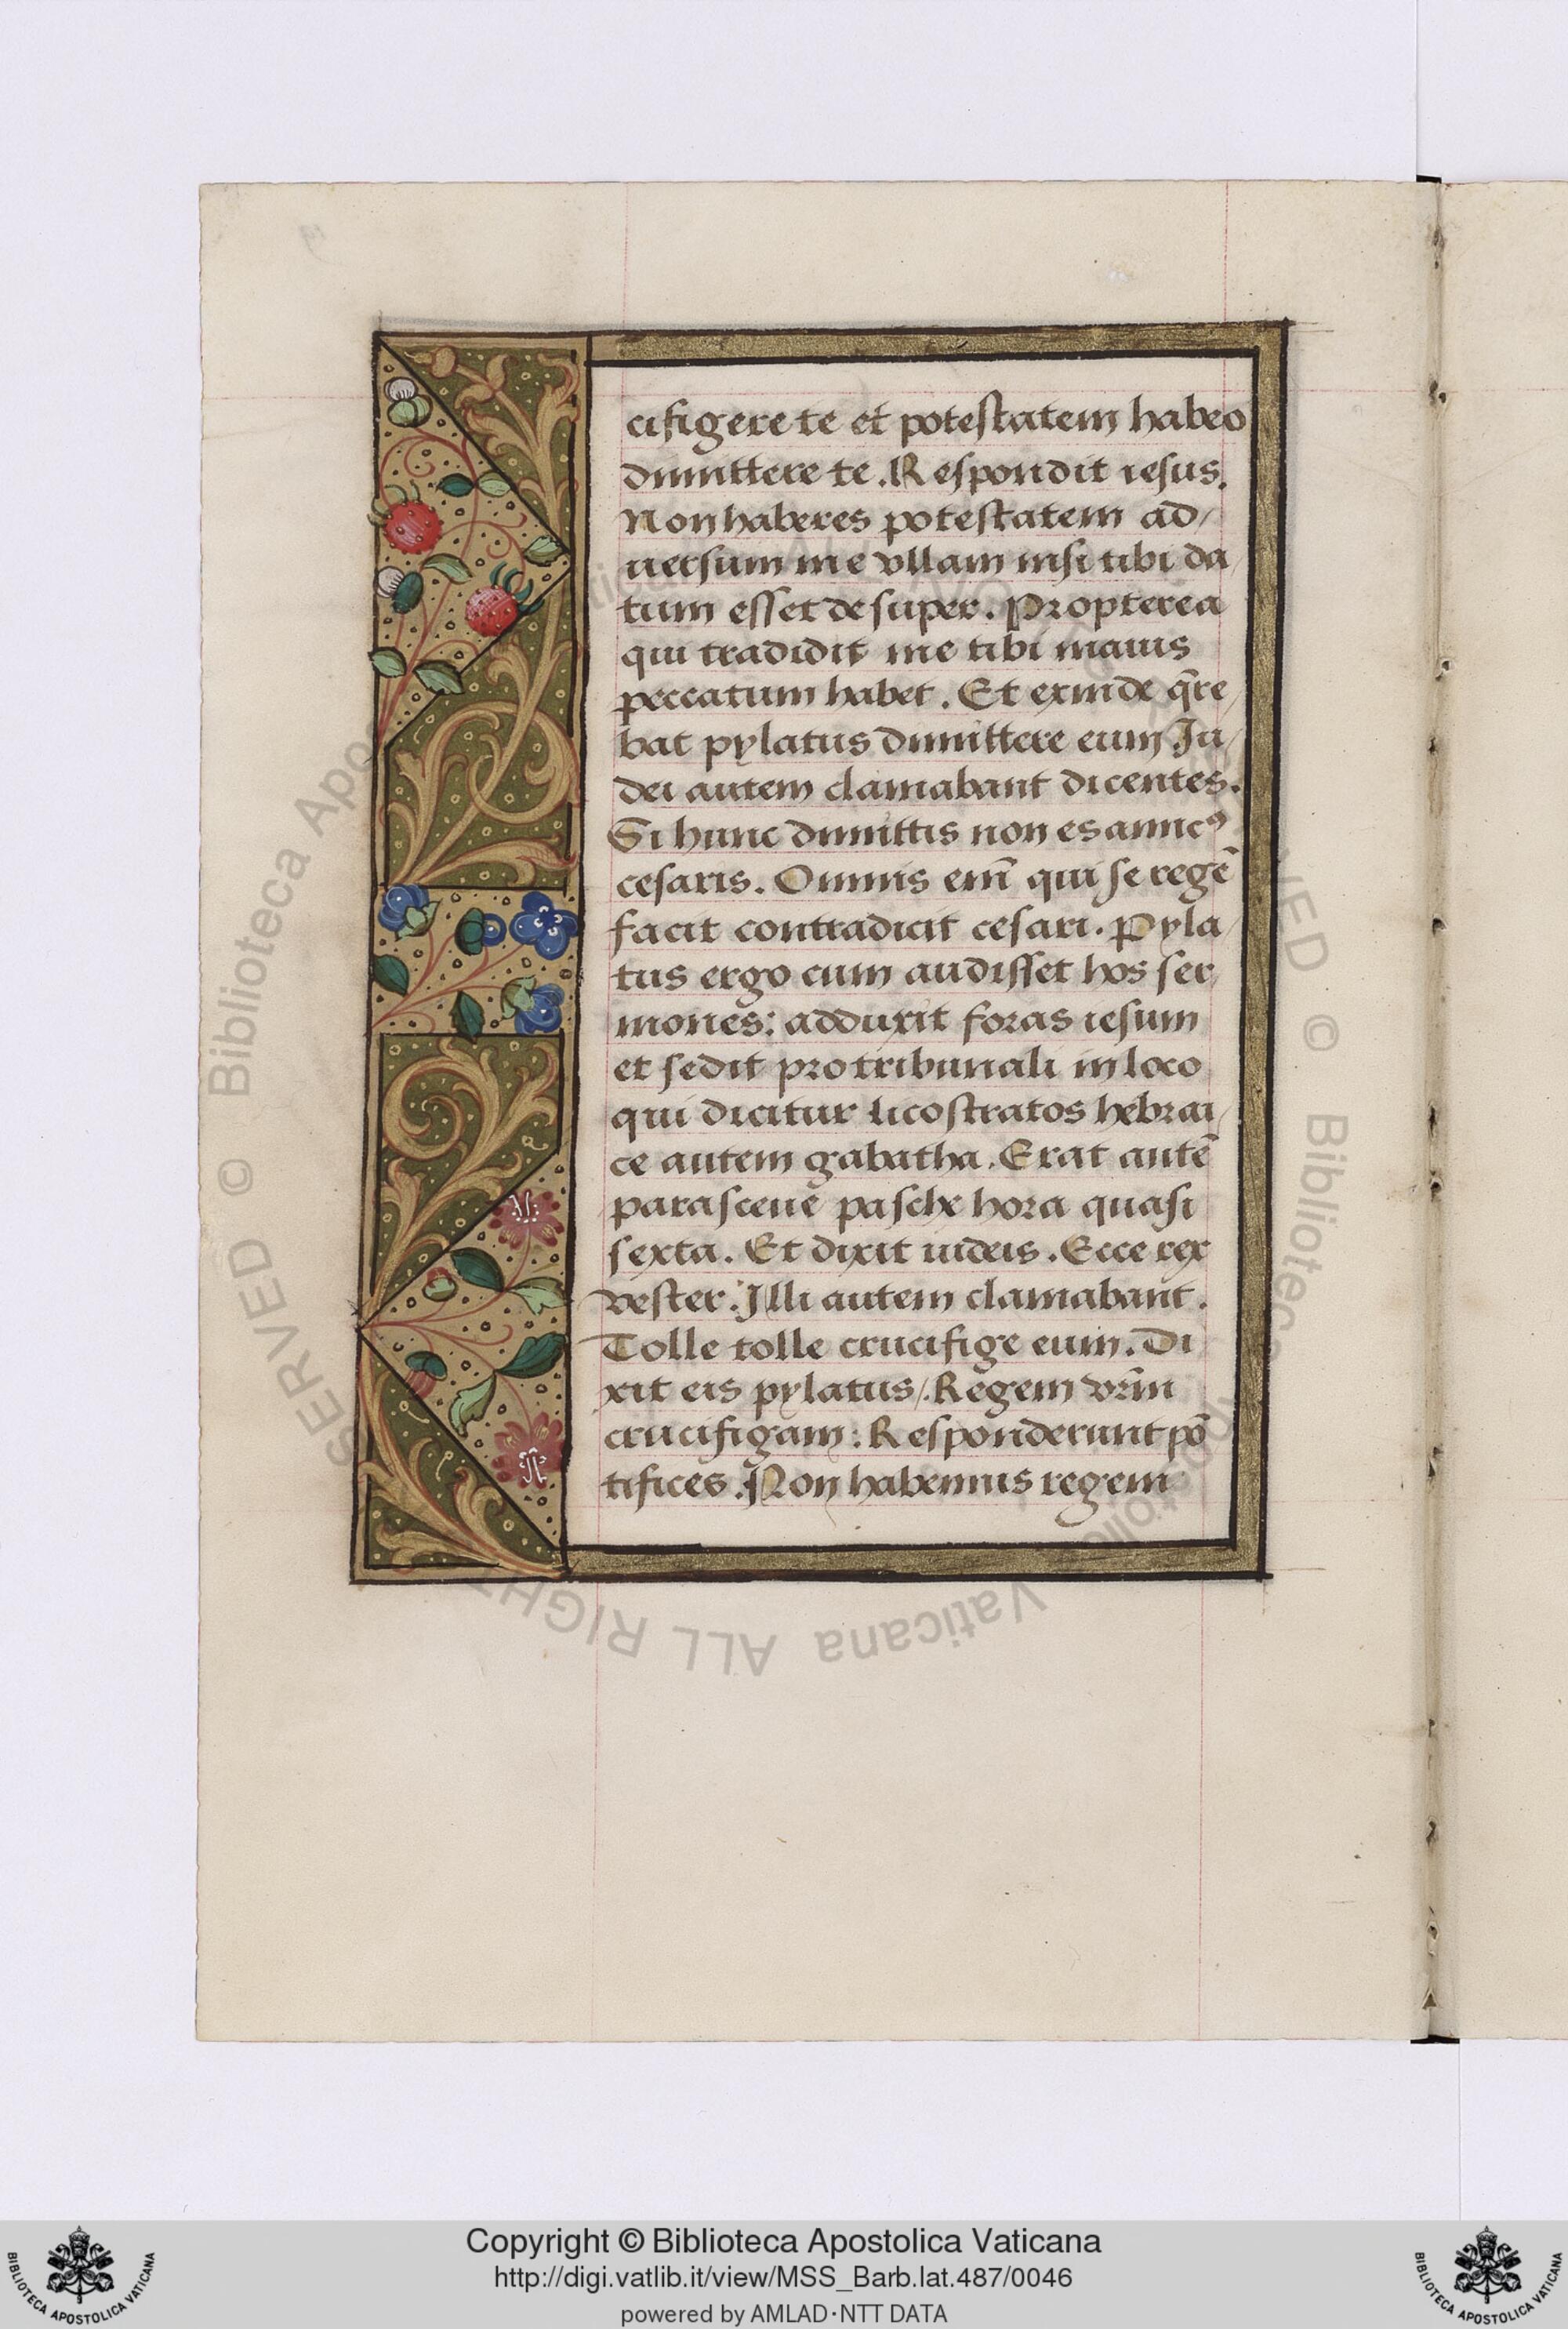 cifigere te et potestatem habeo
dimittere te. Respondit iesus.
Non haberes potestatem ad/
uersum me vllam nisi tibi da/
tum esset desuper. Propterea
qui tradidit me tibi maius
peccatum habet. Et exinde q̄re/
bat pylatus dimittere eum Iu/
dei autem clamabant dicentes.
Si hunc dimittis non es amicꝰ
cesaris. Omnis em̄ qui se regē
facit contradicit cesari. Pyla/
tus ergo cum audisset hos ser/
mones: adduxit foras iesum
et sedit pro tribunali in loco
qui dicitur licostratos hebrai/
ce autem gabatha. Erat autē
parasceue pasche hora quasi
sexta. Et dixit iudeis. Ecce rex
vester. Illi autem clamabant.
Tolle tolle crucifige eum. Di
xit eis pylatus/. Regem vr̄m
crucifigam: Responderunt pō
tifices. Non habemus regem
Copyright © Biblioteca Apostolica Vaticana
http://digi.vatlib.it/view/MSS_Barb.lat.487/0046
powered by AMLAD·NTT DATA